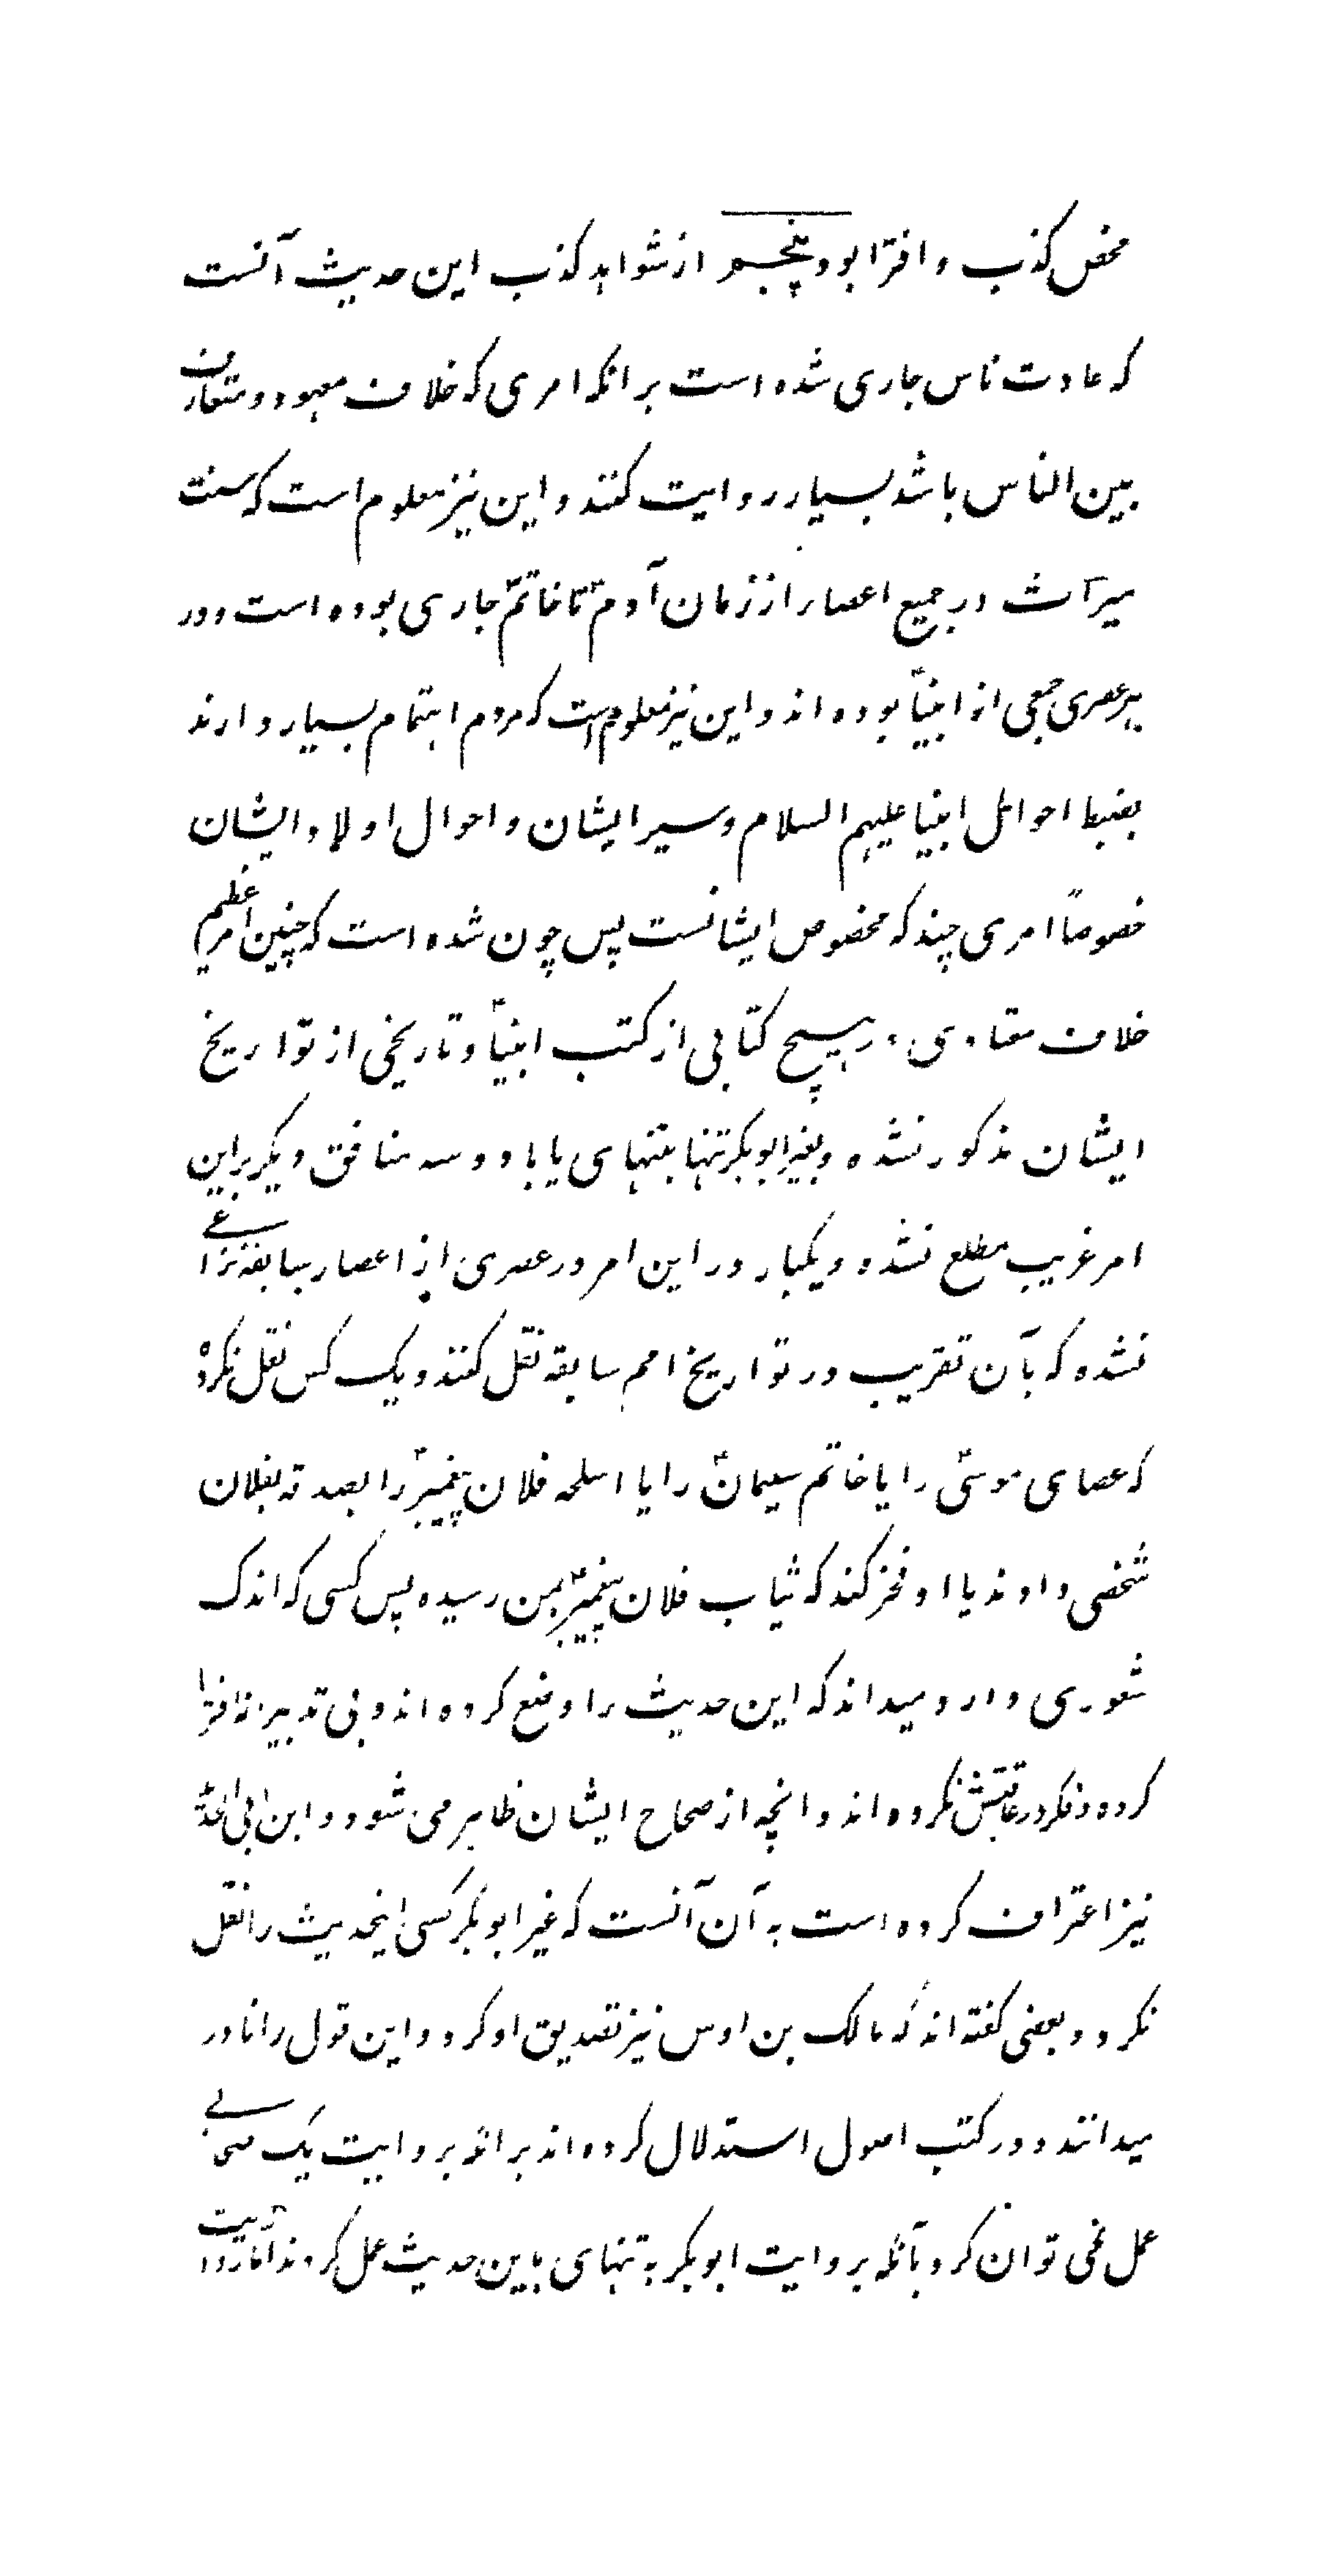 محض کذب و افترا بود پنجم از شواهد کذب این حدیث آنست
که عادت ناس جاری شده است بر انکه امری که خلاف معهود و متعارف
بین الناس باشد بسیار روایت کنند و این نیز معلوم است که سنت
میراث در جمیع اعصار از زمان آدمؑ تا خاتمؐ جاری بوده است و در
هر عصری جمعی از انبیاؑ بوده اند و این نیز معلوم است که مردم اهتمام بسیار دارند
بضبط احوال انبیا علیهم السلام و سیر ایشان و احوال اولاد ایشان
خصوصاً امری چند که مخصوص ایشانست پس چون شده است که چنین امر عظیم
خلاف معتادی در هیچ کتابی از کتب انبیاؑ و تاریخی از تواریخ
ایشان مذکور نشده و بغیر ابوبکر تنها بتنهای یا با دو سه منافق دیگر بر این
امر غریب مطلع نشده و یکبار در این امر در عصری از اعصار سابقه نزاعے
نشده که بآن تقریب در تواریخ امم سابقه نقل کنند و یک کس نقل نکرده
که عصای موسیؑ را یا خاتم سلیمانؑ را یا اسلحه فلان پیغمبرؑ را بصدقه بفلان
شخصی دادند یا او فخر کند که ثیاب فلان پیغمبرؑ بمن رسیده پس کسی که اندک
شعوری دارد میداند که این حدیث را وضع کرده اند و بی تدبیرانه افترا
کرده و فکر در عاقبتش نکرده اند و انچه از صحاح ایشان ظاهر می شود و ابن ابی الحدید
نیز اعتراف کرده است به آن آنست که غیر ابوبکر کسی اینحدیث را نقل
نکرد و بعضی گفته اند که مالک بن اوس نیز تصدیق او کرد و این قول را نادر
میدانند و در کتب اصول استدلال کرده اند بر انکه بروایت یک صحابے
عمل نمی توان کرد بآنکه بروایت ابوبکر به تنهای باین حدیث عمل کردند اما روایت